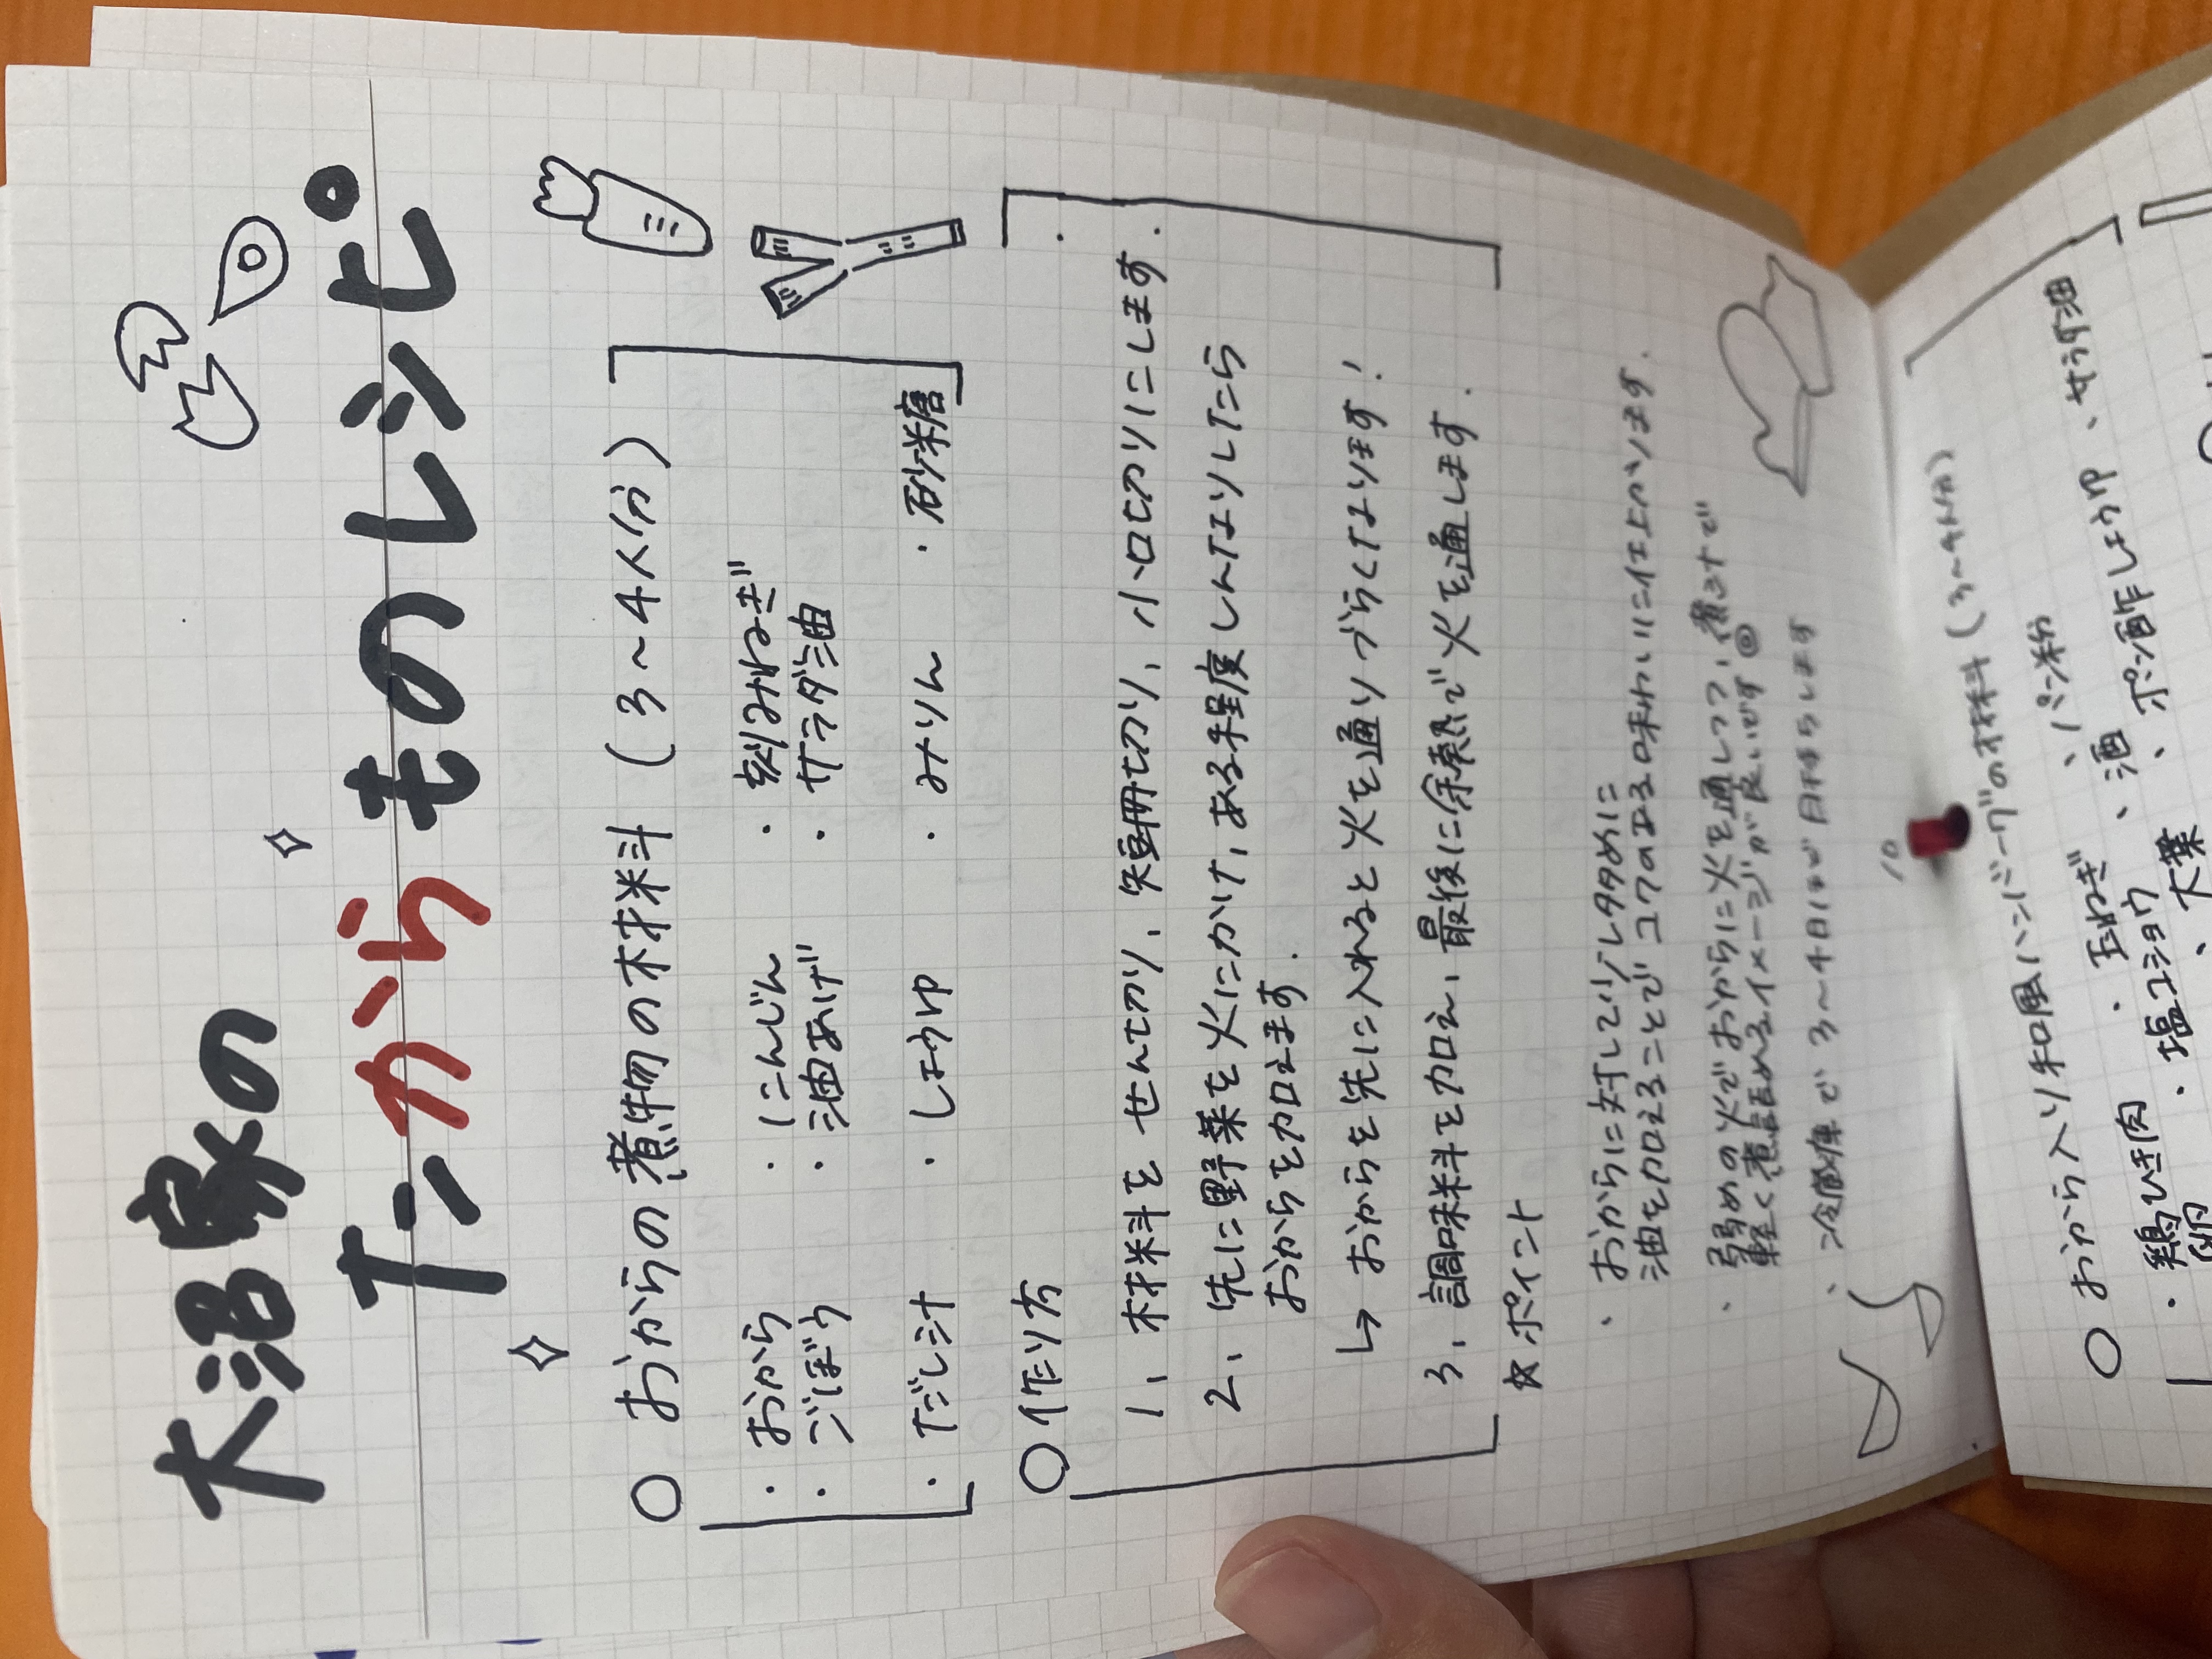 大沼家の
たからものレシピ
○ おからの煮物の材料 (3～4人分)
・おから ・にんじん ・刻みねぎ
・ごぼう ・油あげ ・サラダ油
・だし汁 ・しょうゆ ・みりん ・砂糖
○ 作り方
1, 材料を せん切り, 短冊切り, 小口切りにします.
2, 先に野菜を火にかけ, ある程度しんなりしたら
おからを加えます.
↳ おからを先に入れると火を通りづらくなります!
3, 調味料を加え, 最後に余熱で火を通します.
☆ポイント
・おからに対して少し多めに
油を加えることでコクのある味わいに仕上がります.
・弱めの火でおからに火を通しつつ, 煮汁で
軽く煮詰めるイメージが良いです◎
・冷蔵庫で3～4日ほど日持ちします
10
○ おから入り和風ハンバーグの材料 (3～4人分)
・鶏ひき肉 ・玉ねぎ ・パン粉
卵 ・塩コショウ ・酒
・大葉 ・ポン酢しょうゆ ・サラダ油